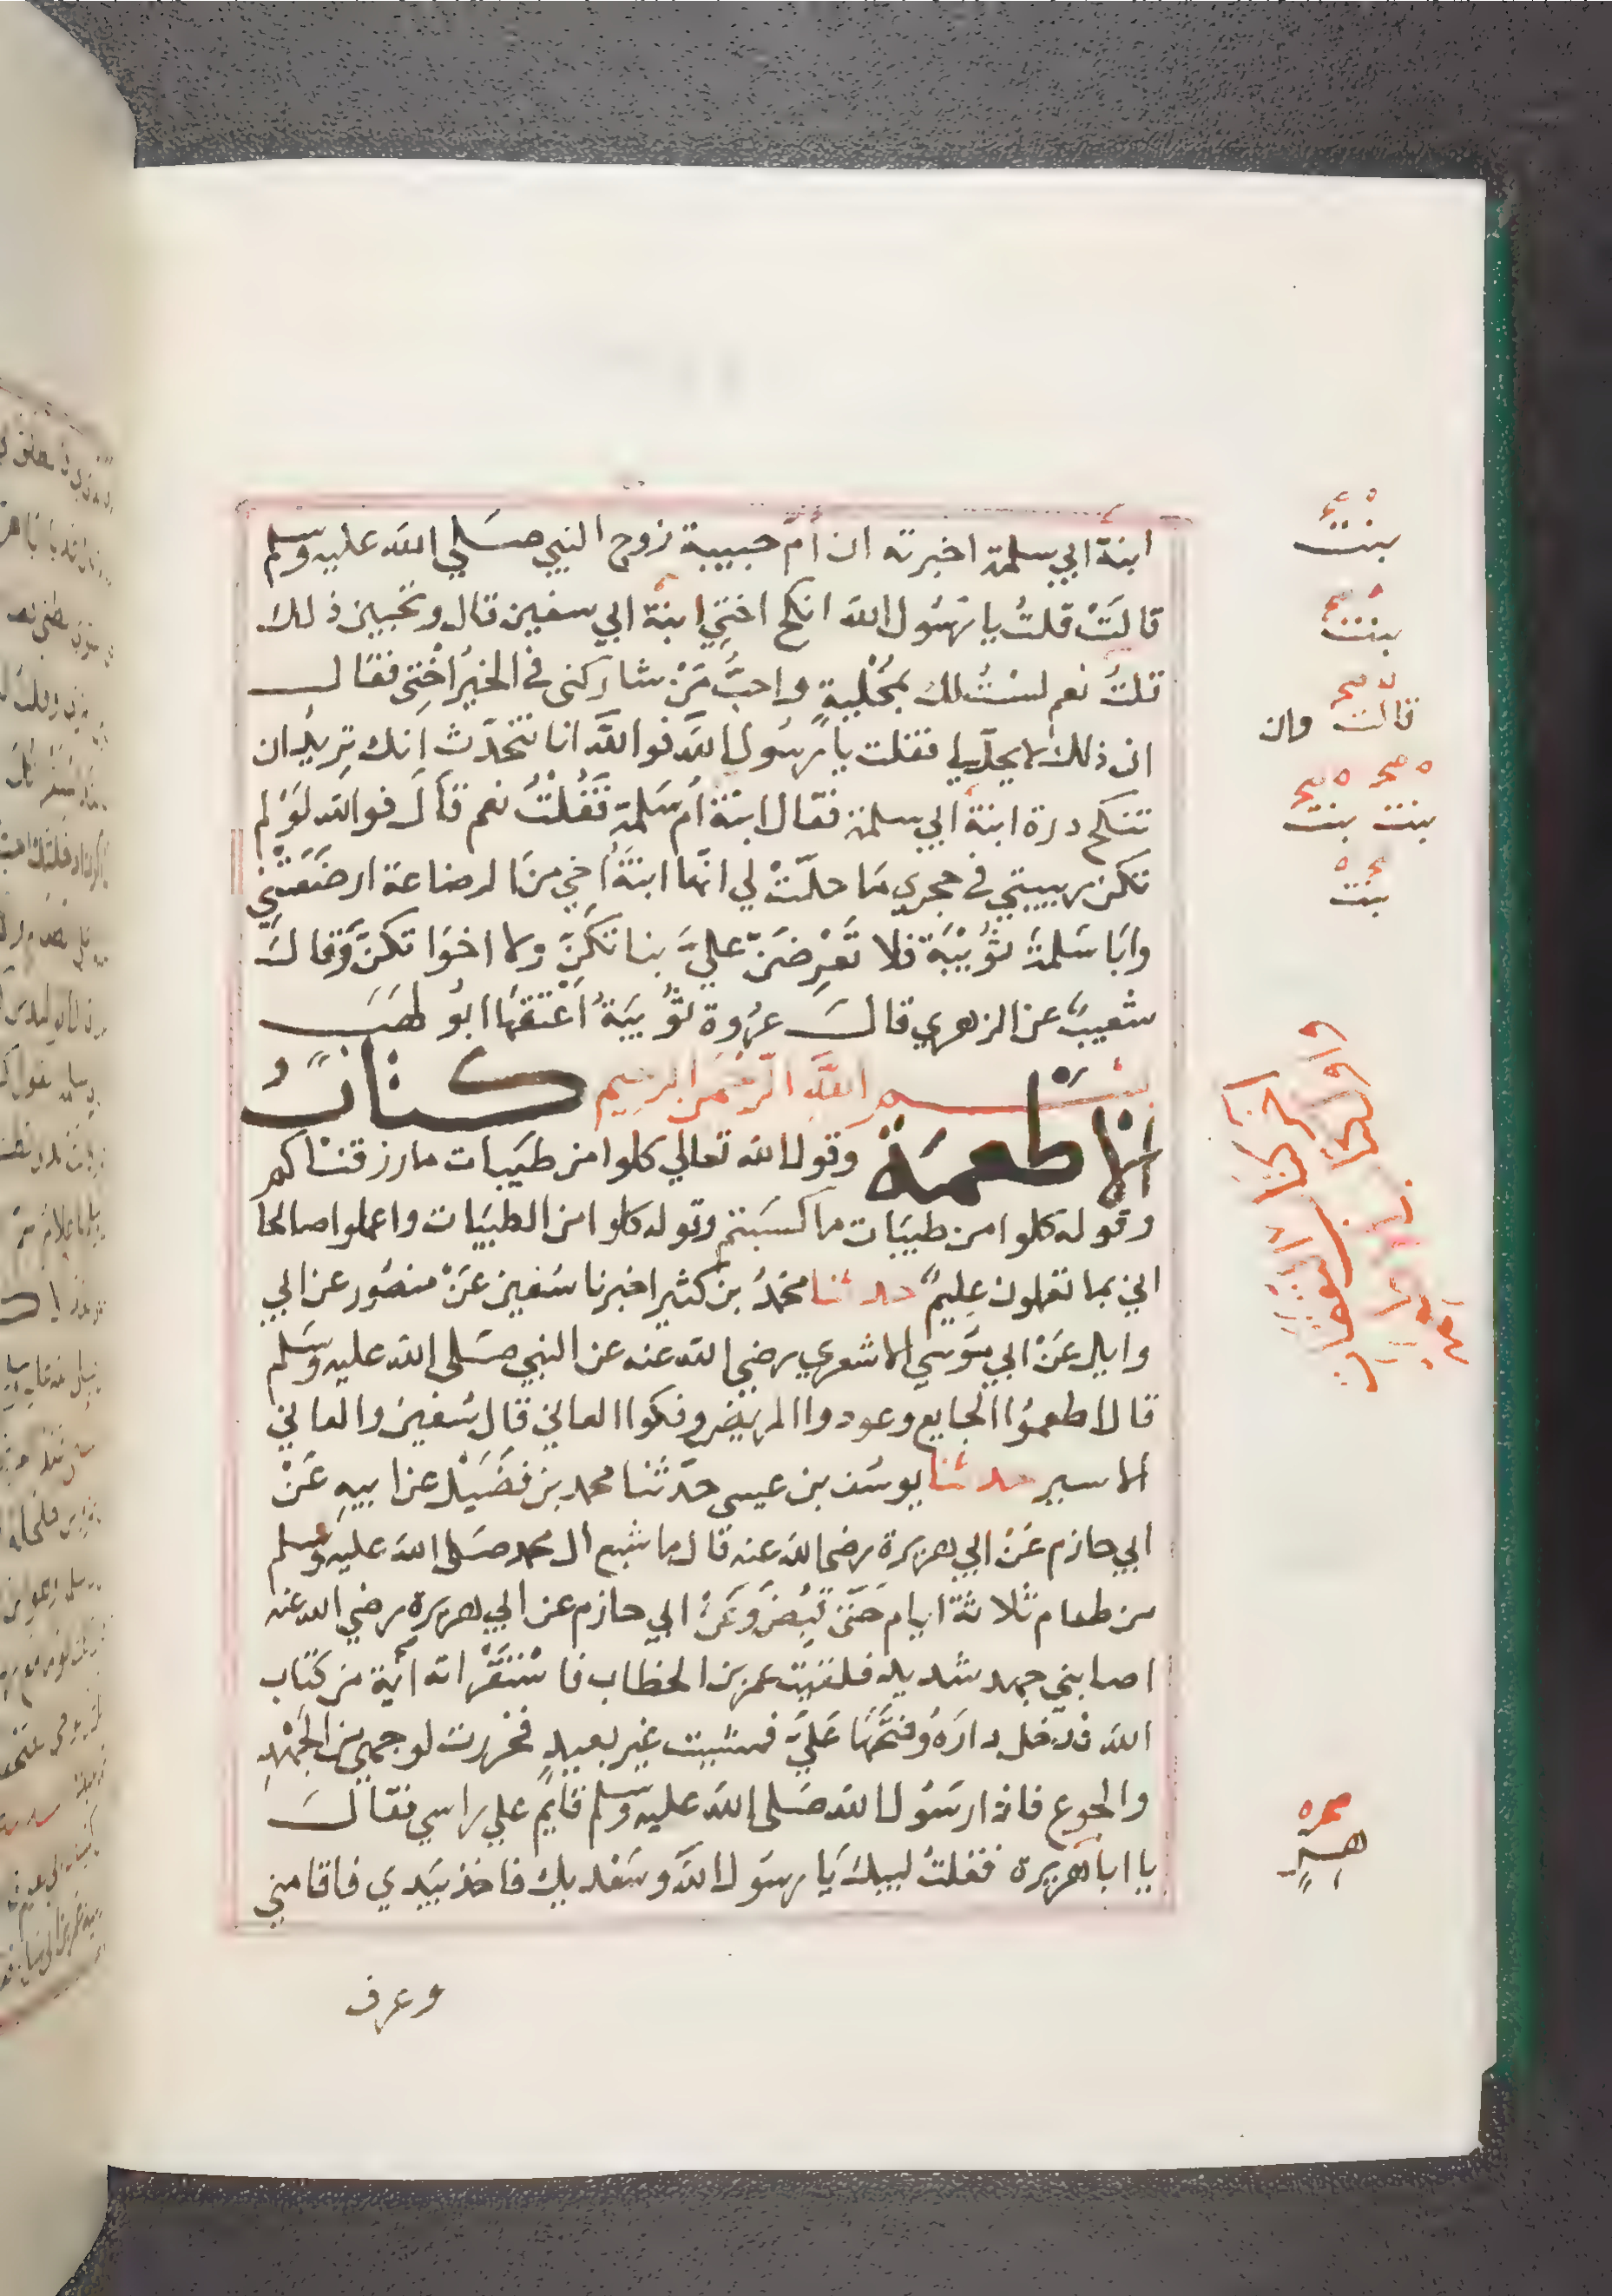 ابنة ابي سلمة اخبرته ان أمّ حبيبة زوج النبي صَلي الله عليه وسلم
قالَتْ قلتُ يا رسُول الله انكح اختِي ابنة ابي سفين قال وتحبين ذلك
قلتُ نعم لسْتُ لك بمُخْليةٍ واحبُّ مَنْ شاركنى في الخيرُ اخْتِى فقال
ان ذلك لا يحلّ لي فقلت يا رسُول اللهَ فواللهَ انا نتحدّث انك تريدُ ان
تنكح درة ابنة ابي سلمة فقال ابنة ام سَلمة فَقُلْتُ نعم قال فوالله لوْ لم
تكن ربيبتي في حجري مَا حلّتْ لي انّها ابنَةُ اخي من الرضاعة ارضَعَتْنِي
وابَا سَلمةَ ثُوَيْبَة فلا تَعْرِضَنّ عليَّ بناتكنَّ ولا اخوَاتكنَّ وَقال
شعيبٌ عن الزهري قالَ عرُوة ثُوَيبَةُ اَعْتقهَا ابُو لهَبَ
بسم اللهِ الرّحمَن الرحِيم كتابُ
الاطعمَة وقول الله تعالي كلوا من طيَبات مارزقناكم
وقوله كلوا من طيبَات ما كسبَتم وقوله كلوا من الطيبَات واعملوا صالحا
اني بما تعملون عليمٌ حدثنا محمدُ بن كثير اخبرنا سُفين عَنْ منصُور عن ابي
وايل عَنْ ابي مَوسي الاشعري رضي الله عنه عن النبي صَلى الله عليه وسَلم
قال اطعمُوا الجايع وعودوا المريض وفكوا العاني قال سُفين والعاني
الاسير حدثنا يوسُف بن عيسى حدّثنا محمد بن فضَيْل عن ابيهِ عَنْ
ابي حازم عَنْ ابي هريرة رضي الله عنه قال ما شبع ال محمد صَلى الله عليه وَسلم
من طعام ثلاثة ايام حَتّى قُبِضَ وَعَنْ ابي حازم عن ابي هريرة رضي الله عنه
اصابني جهد شديد فلقيت عمر بن الخطاب فاسْتقْراته اية من كتاب
الله فدخل دارَهُ وفتحَهَا عَليَّ فمشيت غير بعيدٍ فخررت لوجهى من الجَهْدِ
والجوع فاذا رسَوُل الله صَلى الله عليه وسلم قايمٌ علي راسي فقالَ
يا ابا هريرة فقلتُ لبيك يَا رسوَل اللهَ وسَعْديك فاخذ بيَدي فاقامني
وعرف
بنت
بنت
قالت وان
بنت بنت
بنت
هــرٍ